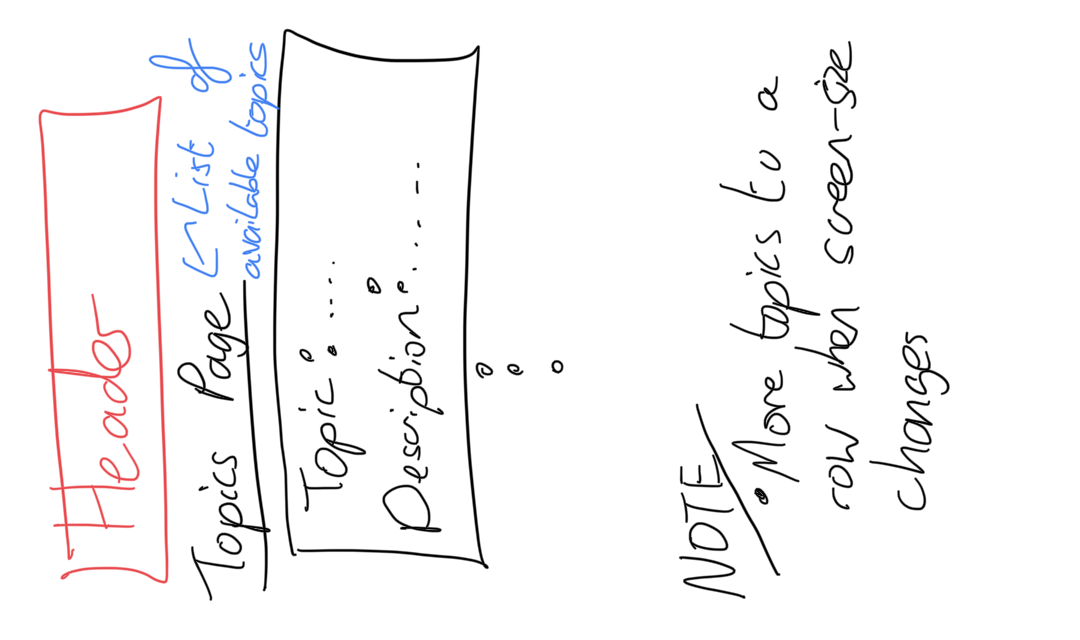 Header
Topics Page
List of
available topics
Topic: ....
Description: .... ...
NOTE
• More topics to a
row when screen-size
changes